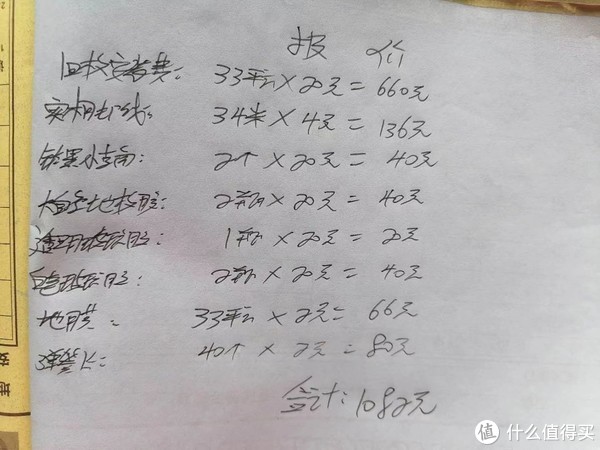 报 价
旧板安装费: 33平方×20元=660元
实木扣线: 34米×4元=136元
2个×20元=40元
大自然地板胶: 2瓶×20元=40元
透明玻璃胶: 1瓶×20元=20元
白色玻璃胶: 2瓶×20元=40元
地膜: 33平方×2元=66元
弹簧卡: 40个×2元=80元
合计:1082元
值 什么值得买